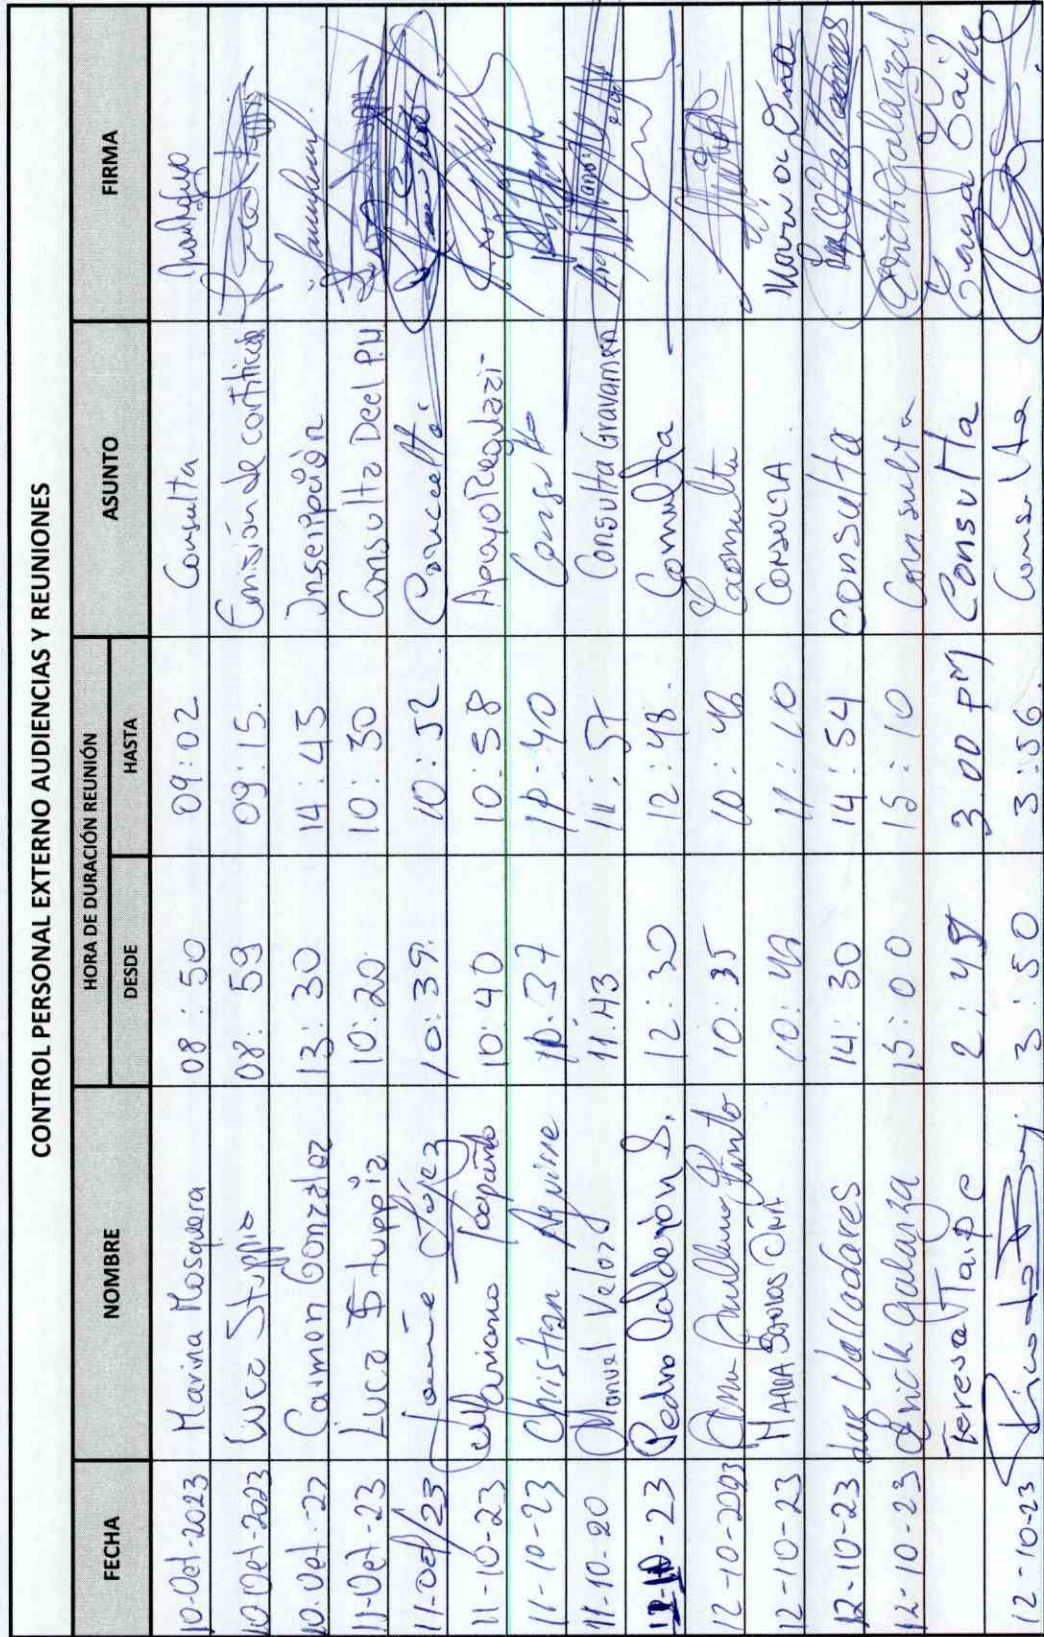 CONTROL PERSONAL EXTERNO AUDIENCIAS Y REUNIONES
FECHA NOMBRE HORA DE DURACIÓN REUNIÓN ASUNTO FIRMA
DESDE HASTA
10-Oct-2023 Marina Mosquera 08:50 09:02 Consulta
10 Oct-2023 Luca Stuppia 08:59 09:15. Emisión de
10. Oct-23 Carmen González 13:30 14:45 Inscripción
11-Oct-23 Luca Stuppia 10:20. 10:30 Consulta Decl PH
11-Oct/23 10:39. 10:52. Consulta
11-10-23 Mariano 10:40 10:58 Apoyo
11-10-23 Christian Aguirre 10:37 10:40 Consulta
11-10-20 Manuel Veloz 11:43 11:57 Consulta Gravamen
-23 Pedro Calderón S. 12:30 12:48. Consulta
12-10-2023 Pinto 10:35 10:48 Consulta
12-10-23 10:49 11:10 CONSULTA Maria Oña
12-10-23 Luz Valladares 14:30 14:54 Consulta
12-10-23 Erick Galarza 15:00 15:10 Consulta Erick Galarza
Teresa Taipe 2:48 3.00 PM Consulta Taipe
12-10-23 3:50 3:56. Consulta